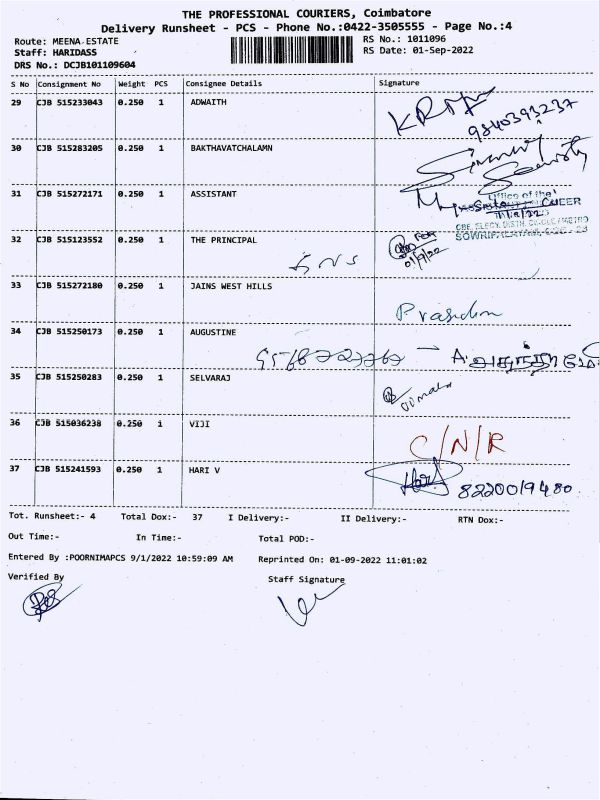 THE PROFESSIONAL COURIERS, Coimbatore
Delivery Runsheet - PCS - Phone No.:0422-3505555 - Page No.:4
Route: MEENA ESTATE
RS No.: 1011096
Staff: HARIDASS
RS Date: 01-Sep-2022
DRS No.: DCJB101109604
S No Consignment No Weight PCS Consignee Details Signature
29 CJB 515233043 0.250 1 ADWAITH
9840393237
30 CJB 515283205 0.250 1 BAKTHAVATCHALAMN
Security
31 CJB 515272171 0.250 1 ASSISTANT
Office of the
32 CJB 515123552 0.250 1 THE PRINCIPAL
01/9/22
33 CJB 515272180 0.250 1 JAINS WEST HILLS
34 CJB 515250173 0.250 1 AUGUSTINE
35 CJB 515250283 0.250 1 SELVARAJ
36 CJB 515036238 0.250 1 VIJI
C/N/R
37 CJB 515241593 0.250 1 HARI V
Hari 8220019480
Tot. Runsheet:- 4 Total Dox:- 37 I Delivery:- II Delivery:- RTN Dox:-
Out Time:- In Time:- Total POD:-
Entered By :POORNIMAPCS 9/1/2022 10:59:09 AM Reprinted On: 01-09-2022 11:01:02
Verified By Staff Signature